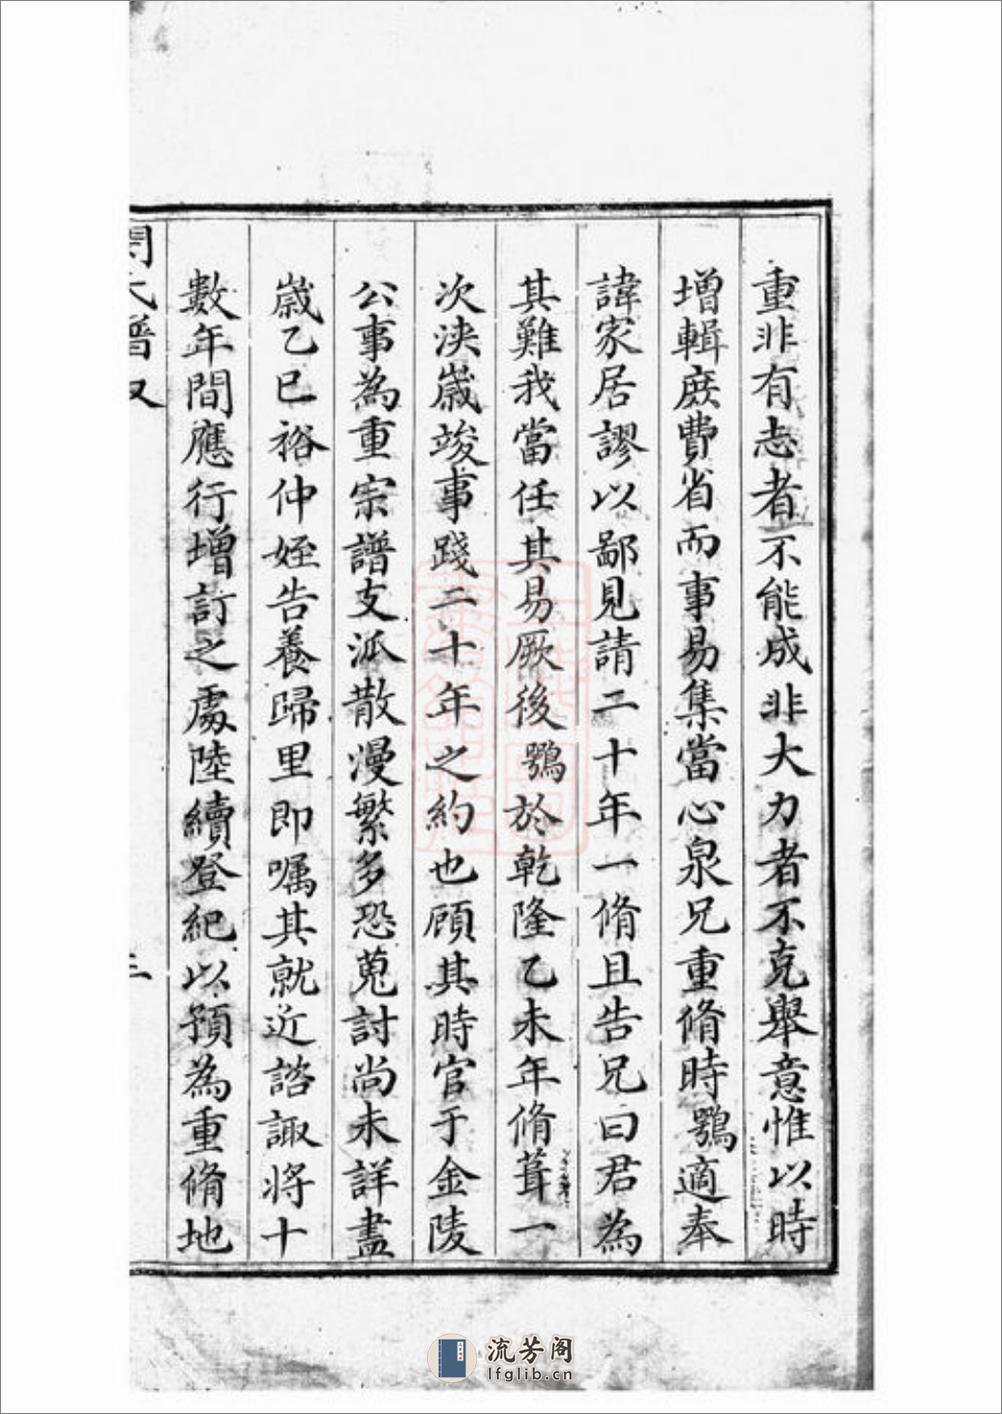 重非有志者不能成非大力者不克舉意惟以時
增輯庶費省而事易集當心泉兄重脩時鶚適奉
諱家居謬以鄙見請二十年一脩且告兄曰君為
其難我當任其易厥後鶚於乾隆乙未年脩葺一
次浹歲竣事踐二十年之約也顧其時官于金陵
公事為重宗譜支派散漫繁多恐蒐討尚未詳盡
歲乙巳裕仲姪告養歸里即嘱其就近諮諏將十
數年間應行增訂之處陸續登紀以預為重脩地
譜又
三
流芳阁
lfglib.cn